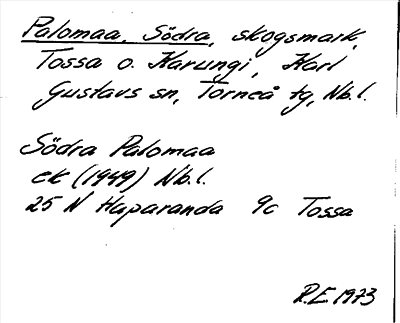 Palomaa, Södra, skogsmark,
Tossa o. Karungi, Karl
Gustavs sn, Torneå tg, Nb.l.
Södra Palomaa
ek (1949) Nb.l.
25 N Haparanda 9c Tossa
R.E. 1973